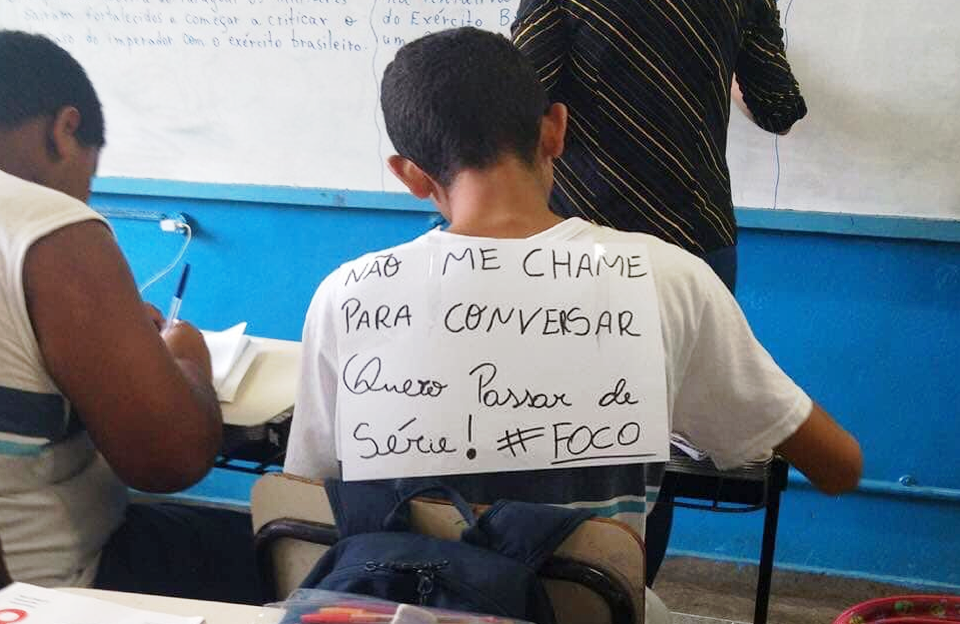 saíram fortalecidos e começar a criticar o
do imperador com o exército brasileiro.
do Exército
NÃO ME CHAME
PARA CONVERSAR
Quero Passar de
Série! #FOCO